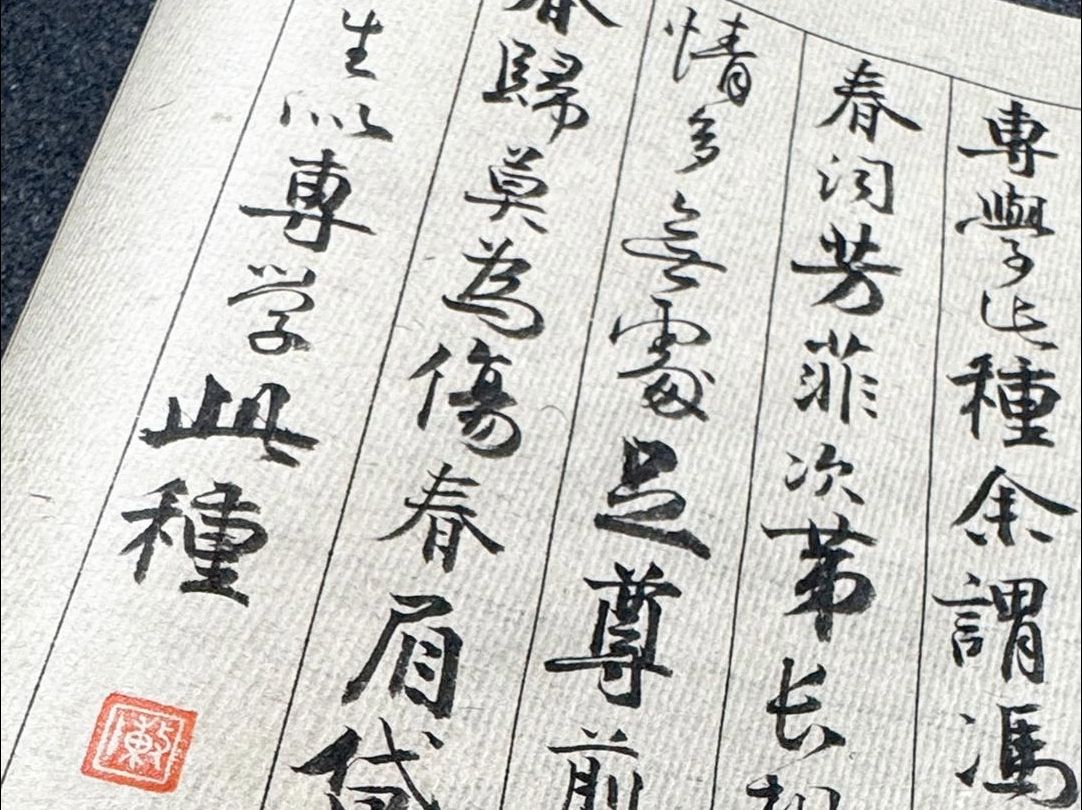 專學此種余謂馮
春词芳菲次第长相
情多無處足尊前
春歸莫為傷春眉黛
生似專学此種